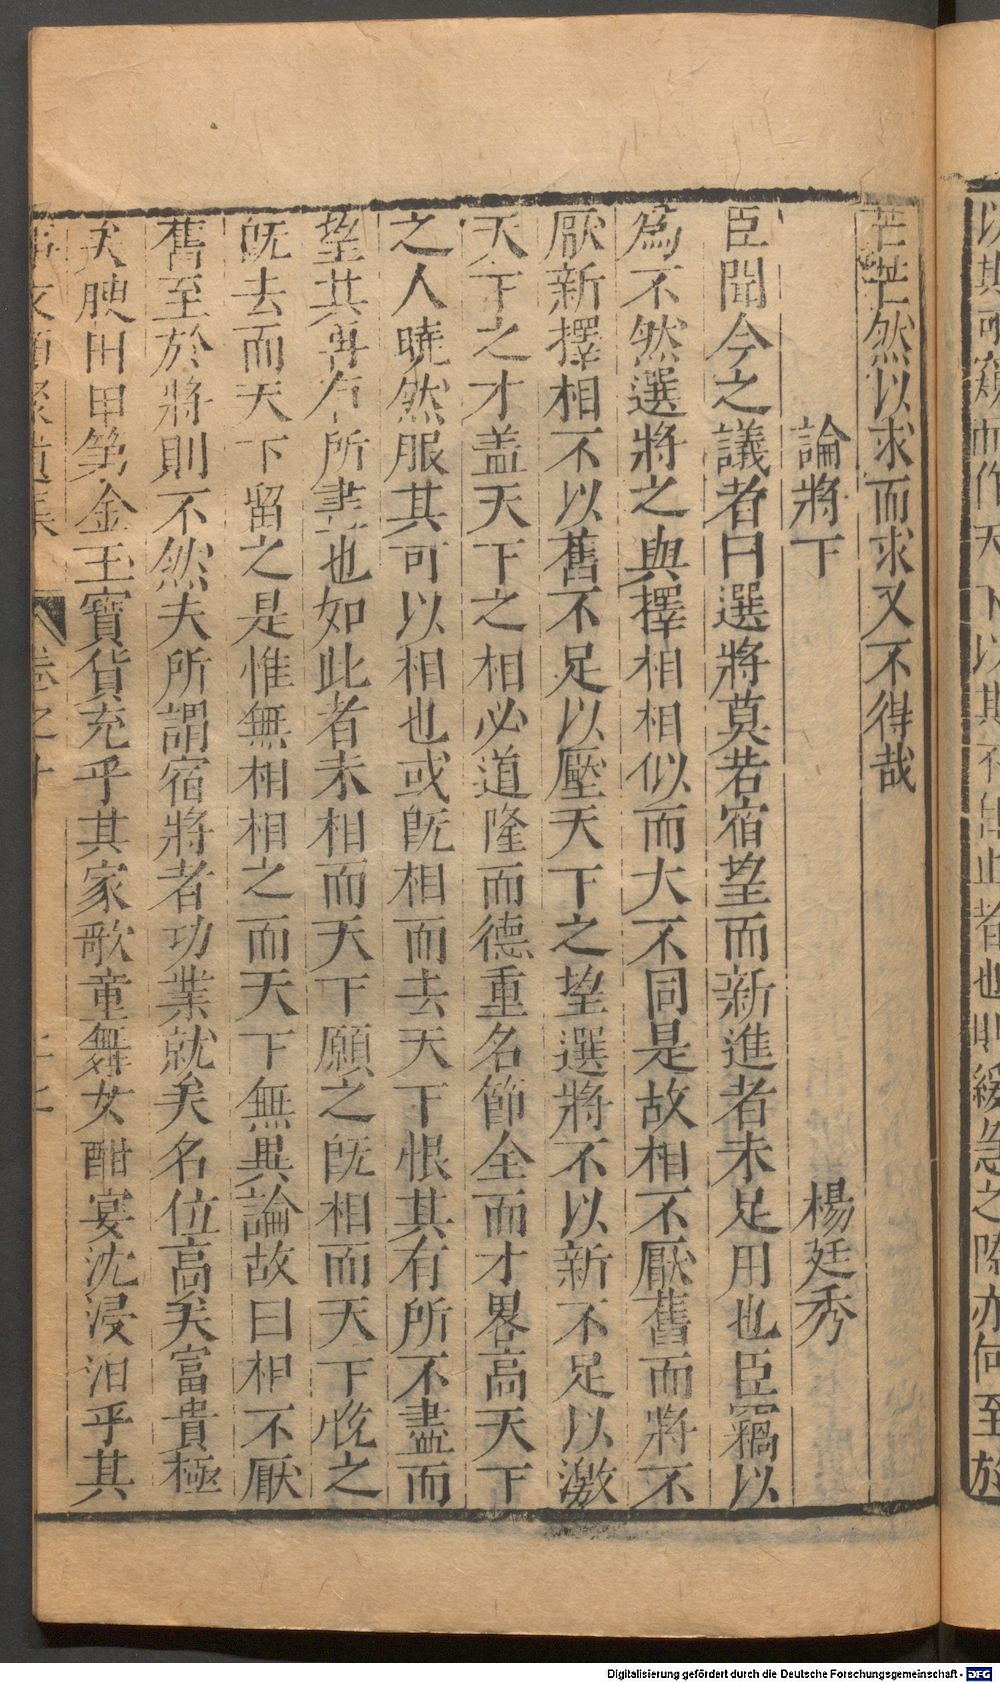 以其可窺而作天下以其
止者也叫緩急之際亦何至於
茫茫然以求而求又不得哉
論將下
楊廷秀
臣聞今之議者曰選將莫若宿望而新進者未足用也臣竊以
為不然選將之與擇相相似而大不同是故相不厭舊而將不
厭新擇相不以舊不足以壓天下之望選將不以新不足以激
天下之才盖天下之相必道隆而德重名節全而才畧高天下
之人曉然服其可以相也或旣相而去天下恨其有所不盡而
望其再有所盡也如此者未相而天下願之旣相而天下恱之
旣去而天下留之是惟無相相之而天下無異論故曰相不厭
舊至於將則不然夫所謂宿將者功業就矣名位高矣富貴極
矣腴田甲第金玉寳貨充乎其家歌童舞女酣宴沈浸汨乎其
事文類聚遺集
卷之十
Digitalisierung gefördert durch die Deutsche Forschungsgemeinschaft - DFG